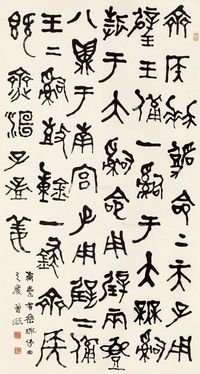 齊侯拜嘉命上天子用
璧玉備一嗣于大無嗣
誓于大嗣命用璧兩壺
八鼎于南宮子用璧二備
玉二嗣鼓鐘一肆齊侯
既齊洹子孟姜
曾熙